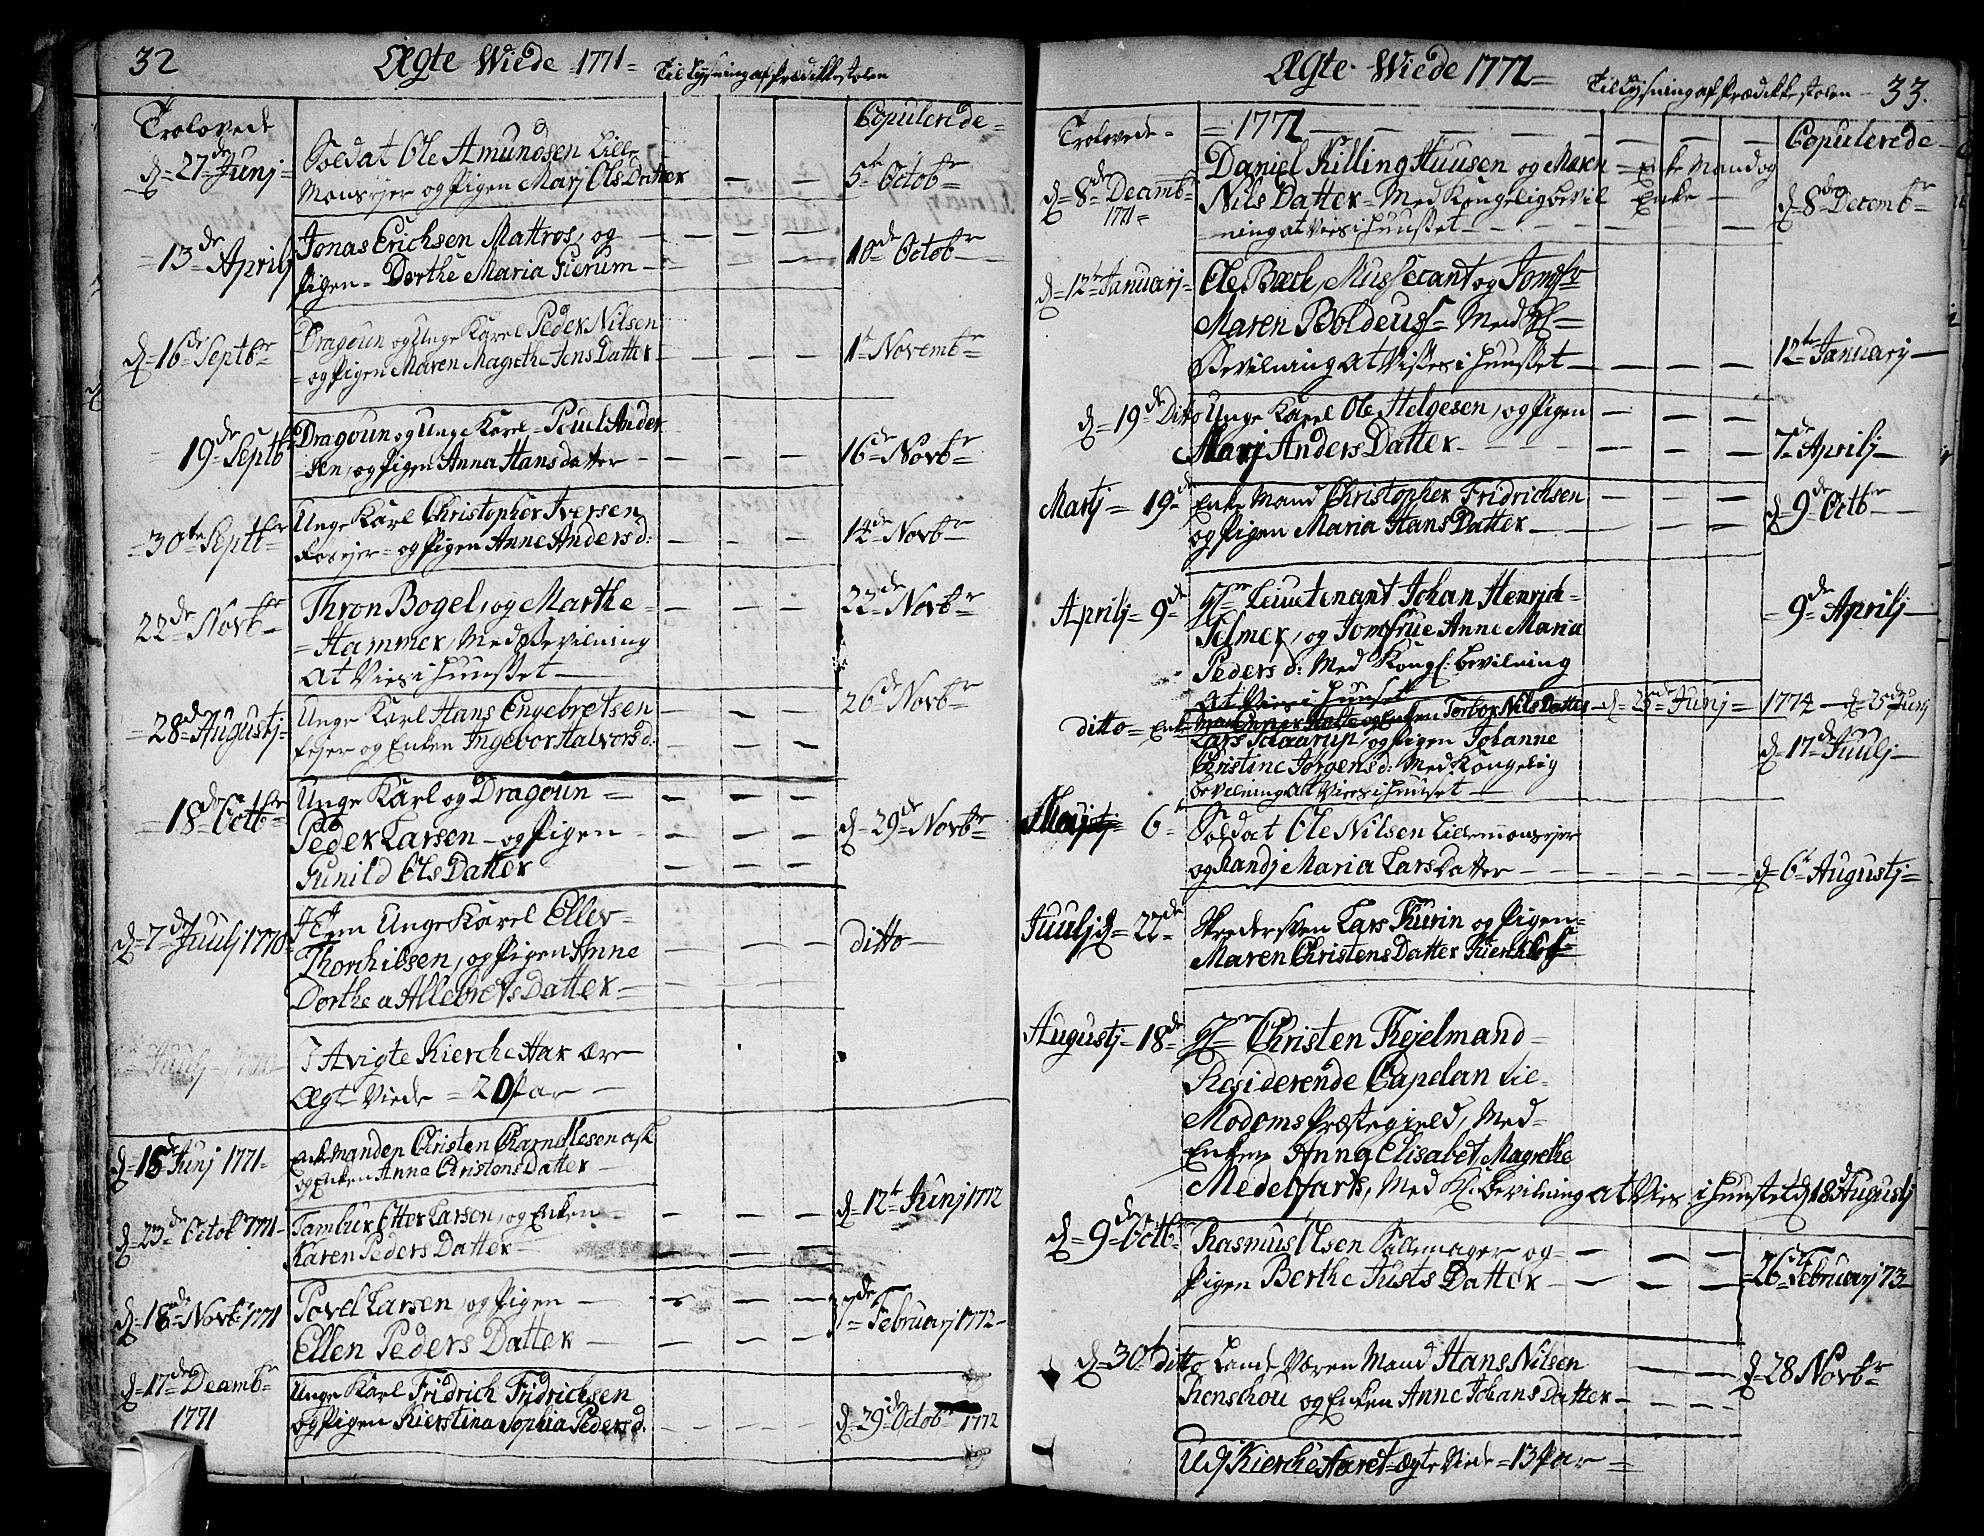 32 Ægte Wiede 1771 = Til Lysning af Prædikkestolen
Trolovede
Copulerede =
d = 27de Junj = Soldat Ole Amundsen Lille
Monsejer og Pigen Marj Ols Datter — — 5te Octobr =
= 13de Aprilj Jonas Erichsen Mattros, og — — —
Pigen = Dorthe Maria Gierum — — 10de Octobr
d = 16de Septbr = Dragoun og Unge Karel Peder Nilsen
= og Pigen Maren Magrethe Jens Datter — — — 1t Novembr =
19de Septbr Dragoun og Unge Karl = Poul Ander
sen, og Pigen Anna Hans datter — — — 16de Novbr =
= 30te Septbr Unge Karl Christopher Iversen
og Pigen Anne Anders d: — — — 14de Novbr
22de Novbr = Thron Bogel, og Marthe = — — — 22de Novbr =
= Hammer, Med Bevilning
at Vies i Huuset —
= 28de Augustj = Unge Karl Hans Engebretsen — 26de Novbr
Ejer og Enken Ingebor Halvors d: — — —
= 18de Octbr = Unge Karl og Dragoun = — — —
Peder Larsen — og Pigen — — — d = 29de Novbr =
Gunild Ols Datter — — —
d = 7de Juulj 1770 = Unge Karel Eller —
Thorchilsen, og Pigen Anne — — — ditto —
Dorthea Allebrets Datter =
I Avigte Kierche Aar ære
Ægte Viede = 20 Par —
d = 15de Junj 1771 = Enke Manden Christen
og Enken Anne Christens Datter —
d = 12t Junj 1772
d = 23de Octob 1771 = Tambur Otter Larsen, og Enken — — —
Karen Peders Datter — — —
d = 18de Novb: 1771 Povel Larsen, og Pigen — — —
Ellen Peders Datter — 7de Februarj 1772 =
d = 17de Decembr = Unge Karl Fridrich Fridrichsen
1771 og Pigen Kierstina Sophia Peders d. — — — d = 29de Octobr 1772
Ægte Wiede 1772 = Til Lysning af Prædikkestolen — 33.
Trolovede = = 1772 — — — — — Copulerede —
d = 8de Decembr = Daniel Killing Huusen og Maren = Enke Mand og
1771 = Nils Datter = Med Kongelig bevil Enke — d 8de Decembr =
= ning at Vies i Huuset —
d = 12te Januarj = Ole Bæch, Mussecant og Jomfr
Maren Boldeus = Med Kl =
Bevilning At Vises i Huuset — — — — 12te Januarj —
d = 19de Ditto Unge Karel Ole Helgesen, og Pigen — — —
Marj Anders Datter — — — — 7de Aprilj —
Martj = 19de Enke Mand Christopher Fridrichsen — — —
og Pigen Maria Hans Datter — — — — d 9de Octbr —
Aprilj = 9de Hr Lieutenant Johan Henrich = = 9de Aprilj —
Selmer, og Jomfrue Anne Maria
Peders d: Med Kongl: bevilning
At Vies i Huuset
ditto = Enke Mand og Enken Torbor Nils Datter — d = 25de Junj = 1772 — d = 25de Junj
Lars Schaarup, og Pigen Johanne d = 17de Juulj —
Christine Jørgens d: Med Kongelig
bevilning At Vies i Huuset —
Maj = 6t Soldat Ole Nilsen Lillemonsejer
og Randj Maria Lars Datter — — — — d = 6t Augustj =
Juulj d = 22de Skredersven Lars Thurin og Pigen =
Maren Christens Datter
Augustj = 18de Hr Christen Kjelmand =
Residerende Capelan til =
Modoms Præstegield, Med =
Enken Anna Elisabet Magrethe
Medelfarts, Med Kl: bevilning at Vies i Huuset d 18de Augustj
d = 9de Octb = Rasmus Olsen Sællemager og = — — —
Pigen Berthe Justs Datter — — — — = 26de Februarj 73 —
d = 30t ditto Hans Nilsen — — d = 28 Novbr =
Renschou og Enken Anne Johans Datter — — — —
Udj Kierche Aaret = Ægte Viede = 13 Par =